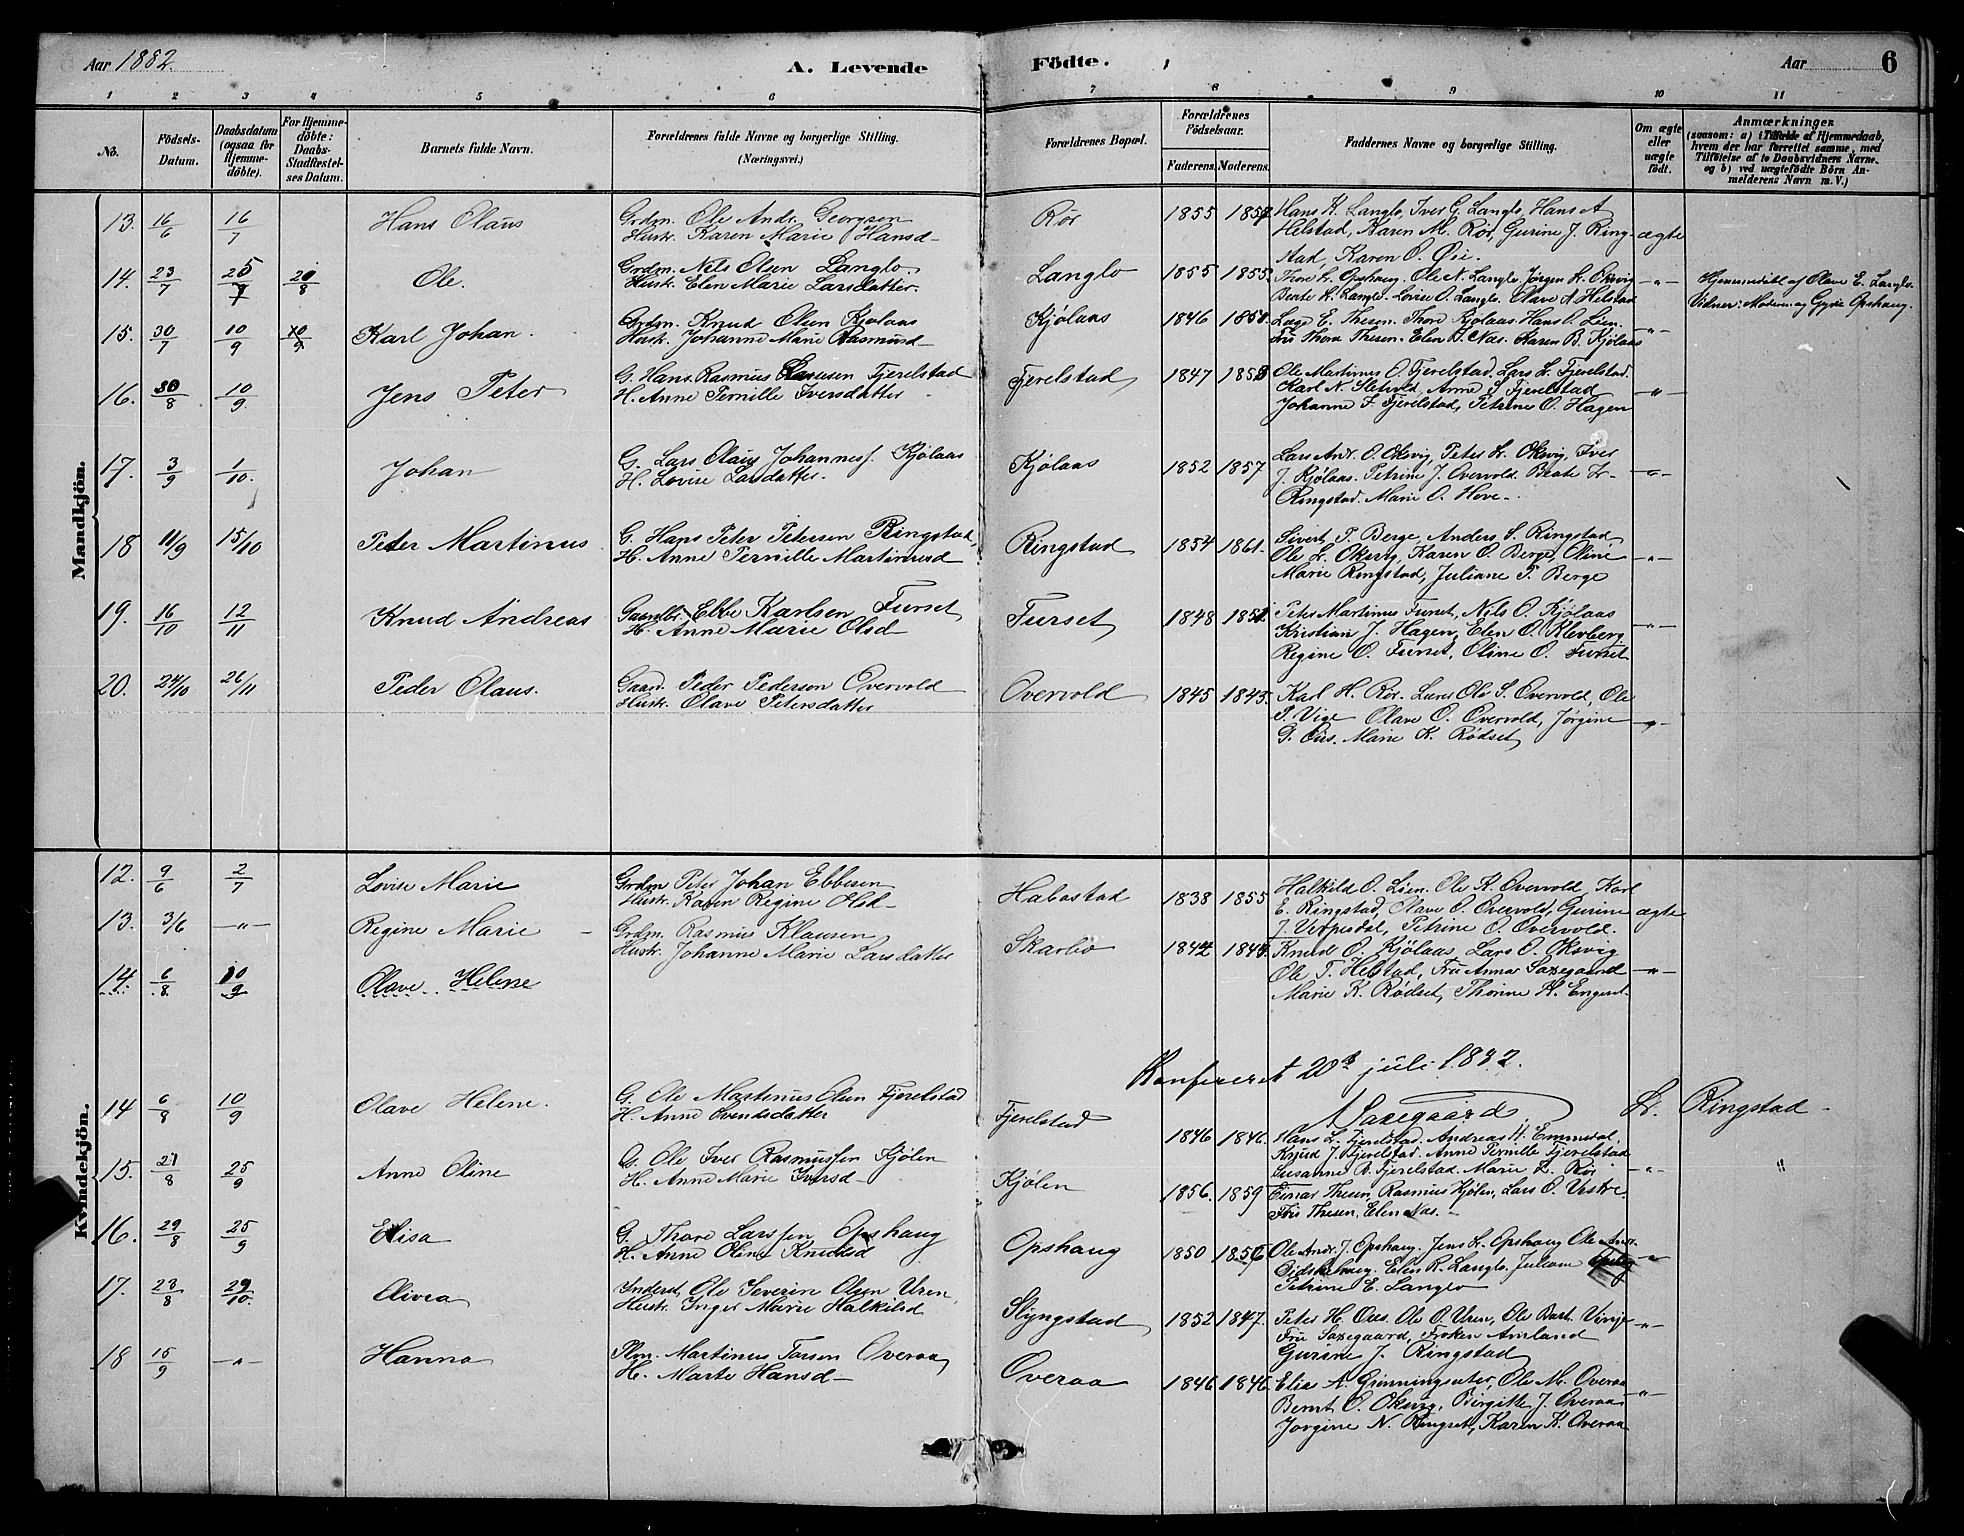 Aar 1882.
A. Levende Födte.
Aar
6
1 2 3 4 5 6 7 8 9 10 11
No.
Födsels-Datum.
Daabsdatum (ogsaa for Hjemme-döbte).
For Hjemme-döbte: Daabs-Stadfæstel-ses Datum.
Barnets fulde Navn.
Forældrenes fulde Navne og borgerlige Stilling. (Næringsvei.)
Forældrenes Bopæl.
Forældrenes Födselsaar.
Faderens. Moderens.
Faddernes Navne og borgerlige Stilling.
Om ægte eller uægte födt.
Anmærkninger
(saasom: a) i Tilfælde af Hjemmedaab, hvem der har forrettet samme, med Tilföielse af to Daabsvidners Navne. og b) ved uægtefödte Börn An-melderens Navn m. V.)
Mandkjön.
13. 16/6 16/7 Hans Olaus
Grdm. Ole Andr. Georgsen
Hustr. Karen Marie Hansd-
Rör 1855
Hans K. Langlo, Iver G. Langlo, Hans A
Helstad, Karen M. Rör, Gurine J. Ring- ægte
stad, Karen O. Öie.
14. 23/7 20/8 Ole.
Grdm. Nils Olsen Langlo.
Hustr. Elen Marie Larsdatter.
Langlo 1855 1855.
Thore L. Opshaug. Ole N. Langlo Jörgen K. Oksvig -"-
Berte K. Langlo. Lovise O. Langlo. Olave A Helstad
Hjemmedöbt af Olave E. Langlo.
Vidner: Moderen og Gyda Opshaug.
15. 30/7 10/9 Karl Johan.
Grdm. Knud Olsen Kjölaas
Hustr. Johanne Marie Rasmusd-
Kjölaas 1846
Lage E. Thesen. Thore Kjölaas. Hans O. Lien. -"-
Fru Thora Thesen. Elen B. Næs. Karen B. Kjölaas
16. 30/8 10/9 Jens Peter
G. Hans Rasmus Fjerelstad
H. Anne Pernille Iversdatter
Fjerelstad 1847
Ole Martinus O. Fjerelstad. Lars L. Fjerelstad.
Karl N. Anne S. Fjerelstad -"-
Johanne F. Fjerelstad, Petrine O. Hagen
17. 3/9 1/10. Johan
G. Lars Olaus Johannesf. Kjölaas
H. Lovise Larsdatter.
Kjölaas 1852 1857
Lars Andr. O. Oksvig, Peter L. Oksvig, Iver
J. Kjölaas. Petrine J. Overvold. Beate L- -"-
Ringstad. Marie O. Hove-.
18 11/9 15/10 Peder Martinus
G. Hans Peter Petersen Ringstad,
H. Anne Pernille Martinusd
Ringstad 1854 1861.
Sivert P. Berge, Anders S. Ringstad
Ole L. Oksvig, Karen O. Berge, Oline -"-
Marie Ringstad, Juliane P. Berge
19. 16/10 12/11 Knud Andreas
Gaardbr. Ebbe Karlsen Furset
H. Anne Marie Olsd-
Furset 1848 1851.
Peter Martinus Furset, Nils O. Kjölaas
Kristian J. Hagen, Elen O. Klevberg -"-
Regine O. Furset, Oline O. Furset
20. 24/10 26/11 Peder Olaus.
Gaard. Peder Pederson Overvold
Hustr. Olave Petersdatter
Overvold 1845 1843.
Karl H. Rör. Lærer Ole S. Overvold, Ole
P. Vige Olave O. Overvold, Jörgine -"-
G. Ous. Marie K. Rödset
Kvindekjön.
12. 9/6 2/7 Lovise Marie
Grdm Peter Johan Ebbesen
Hustr. Karen Regine Olsd-
Habostad 1838 1855
Halkild O. Lien. Ole K. Overvold, Karl
E. Ringstad, Olave O. Overvold, Gurine ægte
J. Petrine O. Overvold.
13. 3/6 -"- Regine Marie
Grdm. Rasmus Klausen
Hustr. Johanne Marie Larsdatter
Skarbö
Knud O. Kjölaas, Lars O. Oksvig
Ole T. Helstad, Fru Anna Saxegaard -"-
Marie K. Rödset, Thorine H. Engeset-
14. 6/8 10/9 Olave Helene
Konfereret 20de juli 1882.
A Saxegaard L. Ringstad-
14 6/8 10/9 Olave Helene.
G. Ole Martinus Olsen Fjerelstad
H. Anne Svendsdatter
Fjerelstad 1846 1846.
Hans L. Fjerelstad. Andreas H. Emmedal,
Knud J. Fjerelstad. Anne Pernille Fjerelstad
Susanne B. Fjerelstad. Marie L. Rör -"- "
15. 21/8 25/9 Anne Oline
G. Ole Iver Rasmussen Kjölen
H. Anne Marie Iversd-
Kjölen 1856. 1859
Einar Thesen, Rasmus Kjölen, Lars O.
Fru Thesen, Elen Næs.-
16. 29/8 25/9 Elisa
G. Thore Larssen Opshaug
H. Anne Oline Knudsd
Opshaug 1850 1856
Ole Andr. J. Opshaug. Jens L. Opshaug Ole Andr. -"-
Elen R. Langlo. Juliane
Petrine E. Langlo
17. 23/8 29/10. Olivea
Inderst Ole Severin Olsen Uren,
Hustr. Inger Marie Halkilsd
Slyngstad 1852 1847.
Peter H. Ous. Ole O. Uren, Ole Bart. Vinje -"-
Fru Saxegaard, Fröken Amland
Gurine J. Ringstad
18 15/9 -"- Hanna
Plm. Martinus Larsen Overaa,
H. Marte Hansd-
Overaa 1846 1846.
Elias A. Gunningsæter, Ole M. Overaa
Bernt O. Oksvig, Birgitte J. Overaa -"-
Jörgine N. Ringset, Karen K. Overaa